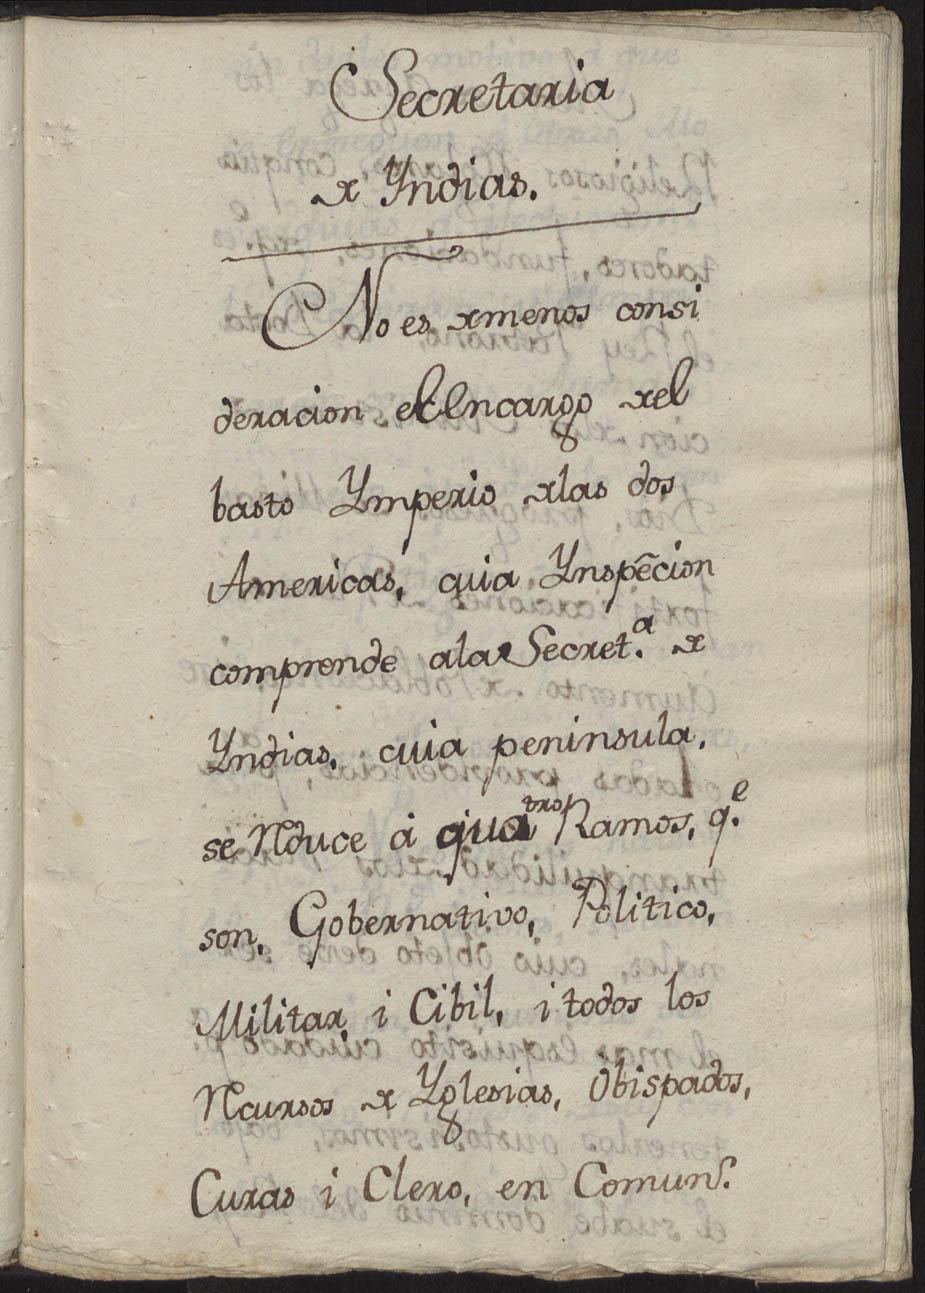 Secretaria
de Yndias.
No es demenos consi
deracion el Encargo del
basto Ymperio delas dos
Americas, cuia Ynspēcion
comprende ala Secret.ª de
Yndias, cuia peninsula,
se Reduce á quatro Ramos, q.e
son, Gobernativo, Politico,
Militar, i Cibil, i todos los
Recursos de Yglesias, Obispados,
Curas i Clero, en Comun.